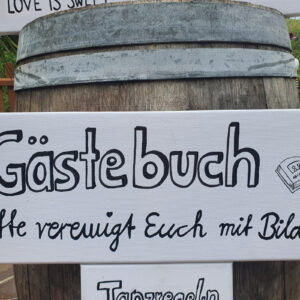 LOVE IS SWEET
Gästebuch
fte vereuigt Euch mit Bild
Tanzregeln